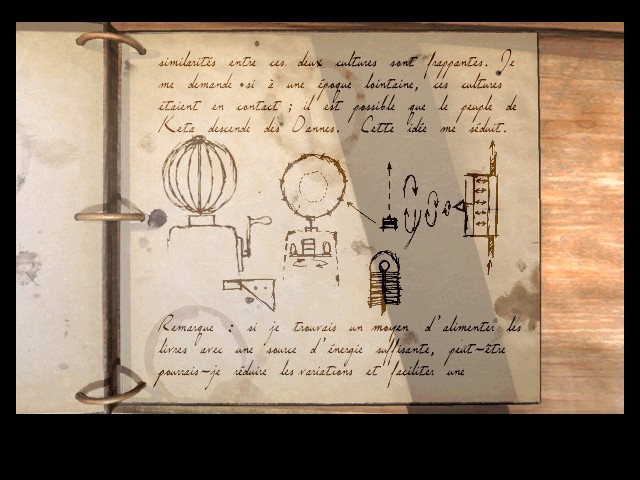 similarités entre ces deux cultures sont frappantes. Je
me demande si à une époque lointaine, ces cultures
étaient en contact ; il est possible que le peuple de
Keta descende des Oannes. Cette idée me séduit.
Remarque : si je trouvais un moyen d'alimenter les
livres avec une source d'énergie suffisante, peut-être
pourrais-je réduire les variations et faciliter une